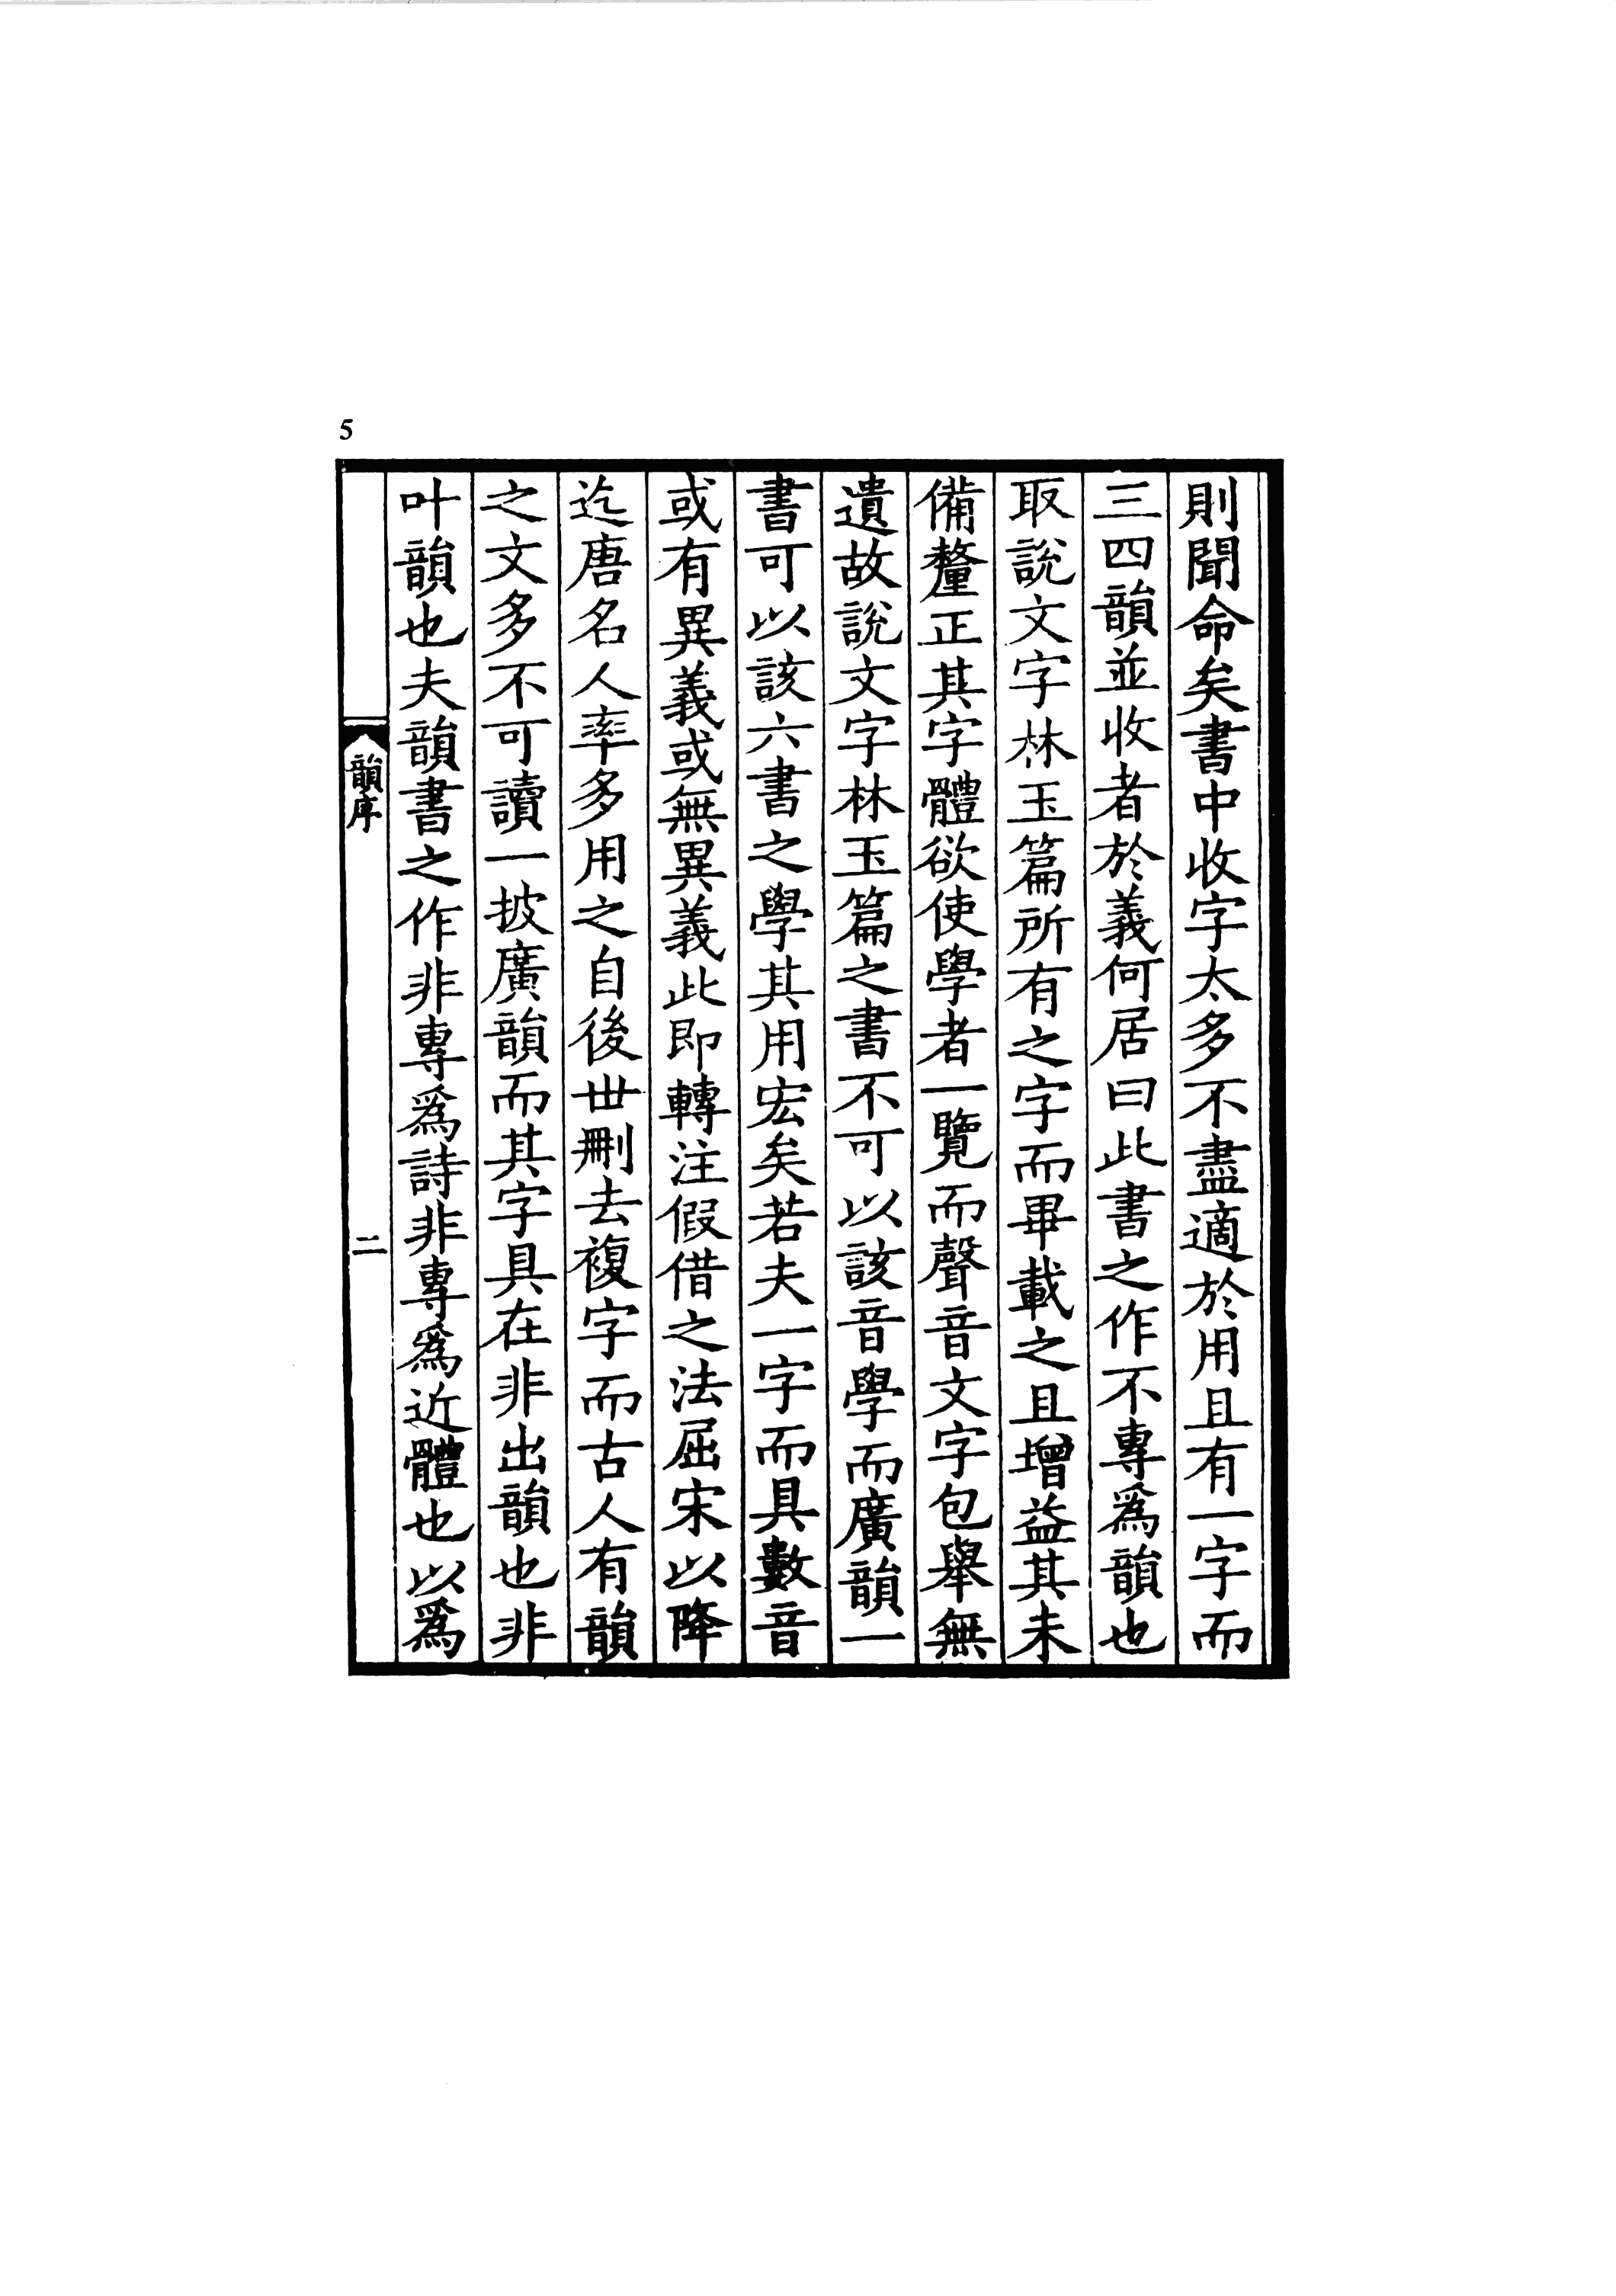 5
則聞命矣書中收字太多不盡適於用且有一字而
三四韻並收者於義何居曰此書之作不專爲韻也
取說文字林玉篇所有之字而畢載之且增益其未
備釐正其字體欲使學者一覽而聲音文字包舉無
遺故說文字林玉篇之書不可以該音學而廣韻一
書可以該六書之學其用宏矣若夫一字而具數音
或有異義或無異義此即轉注假借之法屈宋以降
迄唐名人率多用之自後世刪去複字而古人有韻
之文多不可讀一披廣韻而其字具在非出韻也非
叶韻也夫韻書之作非專爲詩非專爲近體也以爲
韻序
二